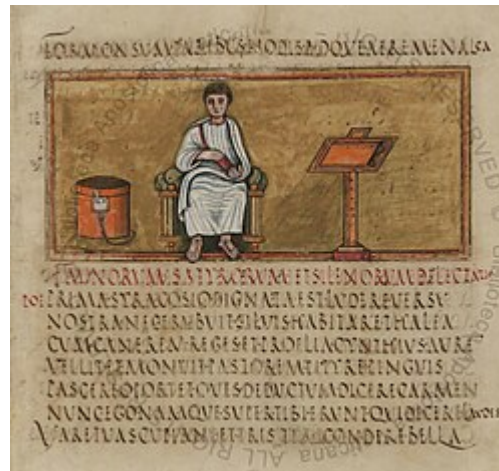 FORMONSUM PARIBUS NODIS ADQUE AERE MENALCA
FAUNORUM·SATYRORUM·ET SILENORUM·DELECTATIO
POE PRIMA SYRACOSIO DIGNATA EST LUDERE VERSU
NOSTRA NEC ERUBUIT SILVIS HABITARE THALEA
CUM CANEREM REGES ET PROELIA CYNTHIUS AURE
VELLIT ET MONUIT PASTOREM TITYRE PINGUIS
PASCERE OPORTET OVIS DEDUCTUM DICERE CARMEN
NUNC EGO NAMQUE SUPER TIBI ERUNT QUI DICERE LAUDES
VARE TUAS CUPIANT ET TRISTIA CONDERE BELLA